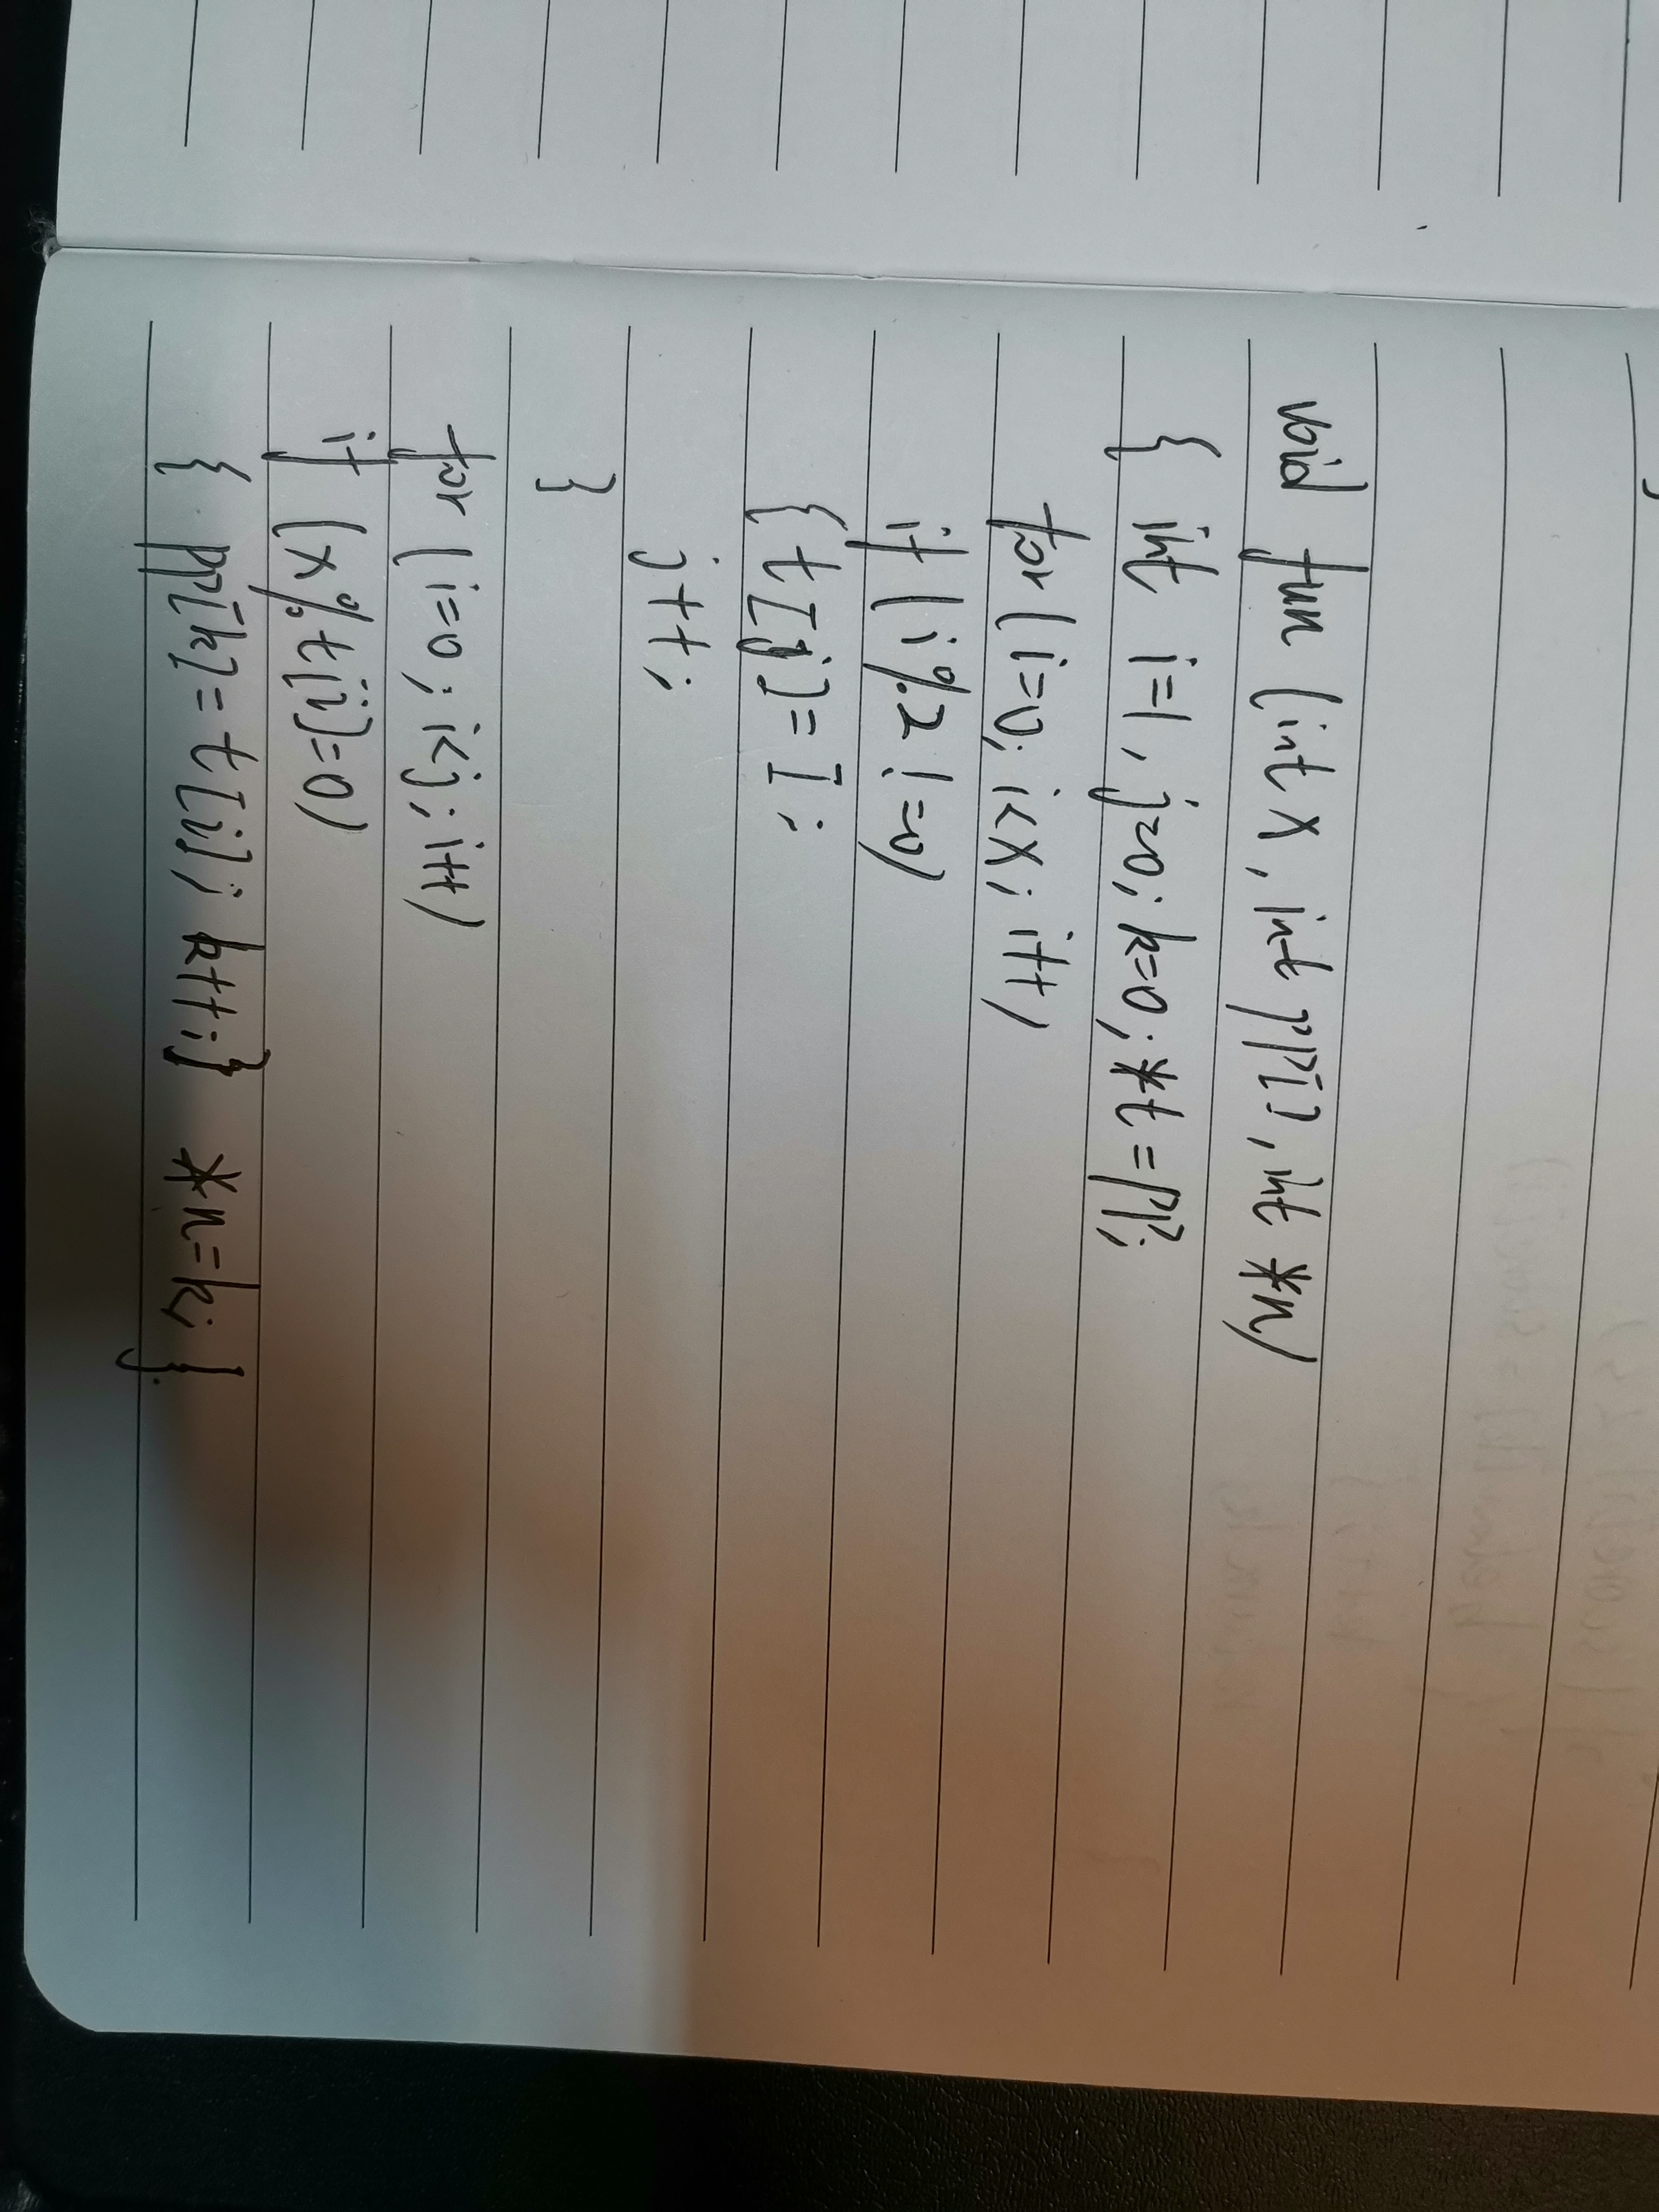 void fun (int x, int pp[], int *n)
{ int i=1, j=0; k=0; *t=pp;
for (i=0; i<x; i++)
if (i%2!=0)
{ t[j]= I;
j++;
}
for (i=0; i<j; i++)
if (x%t[i]=0)
{ pp[k]=t[i]; k++;} *n=k; }.